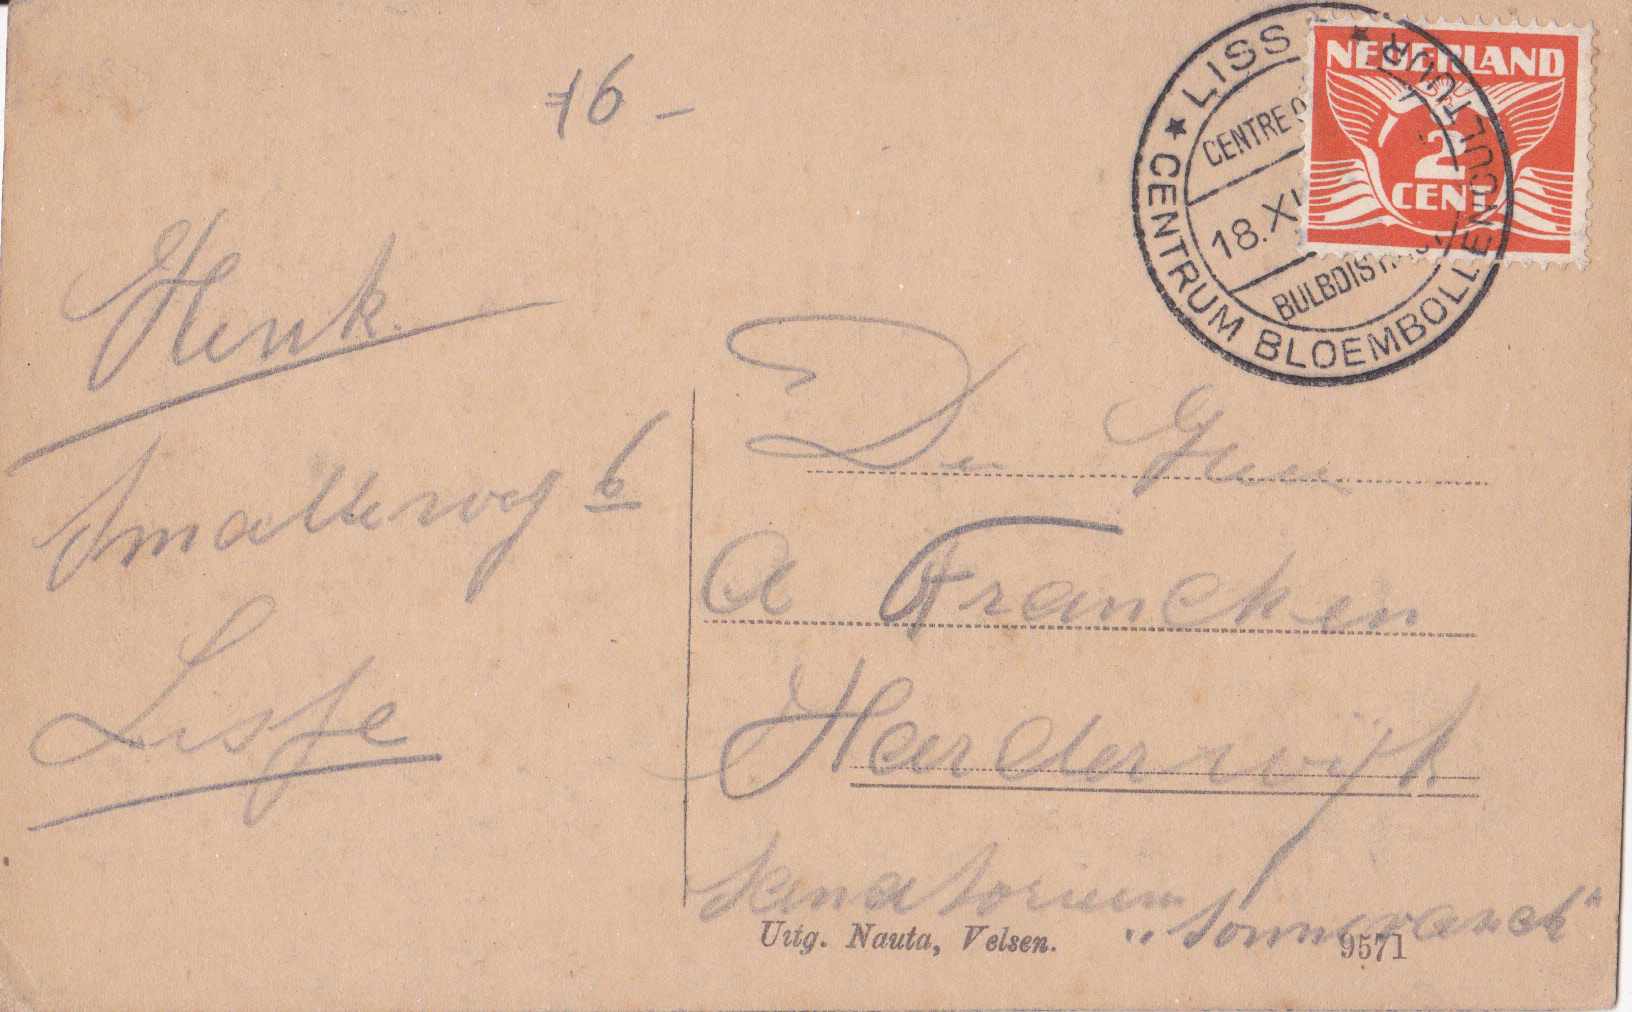 16 -
LISSE ★ CENTRUM BLOEMBOLLENCULTUUR ★
CENTRE
18.XI
BULBDIST
NEDERLAND
2
CENT
Henk.
Smalleweg 6
Lisse
A Francken
Harderwijk
Sanatorium
„Sonnevanck"
Uitg. Nauta, Velsen.
9571